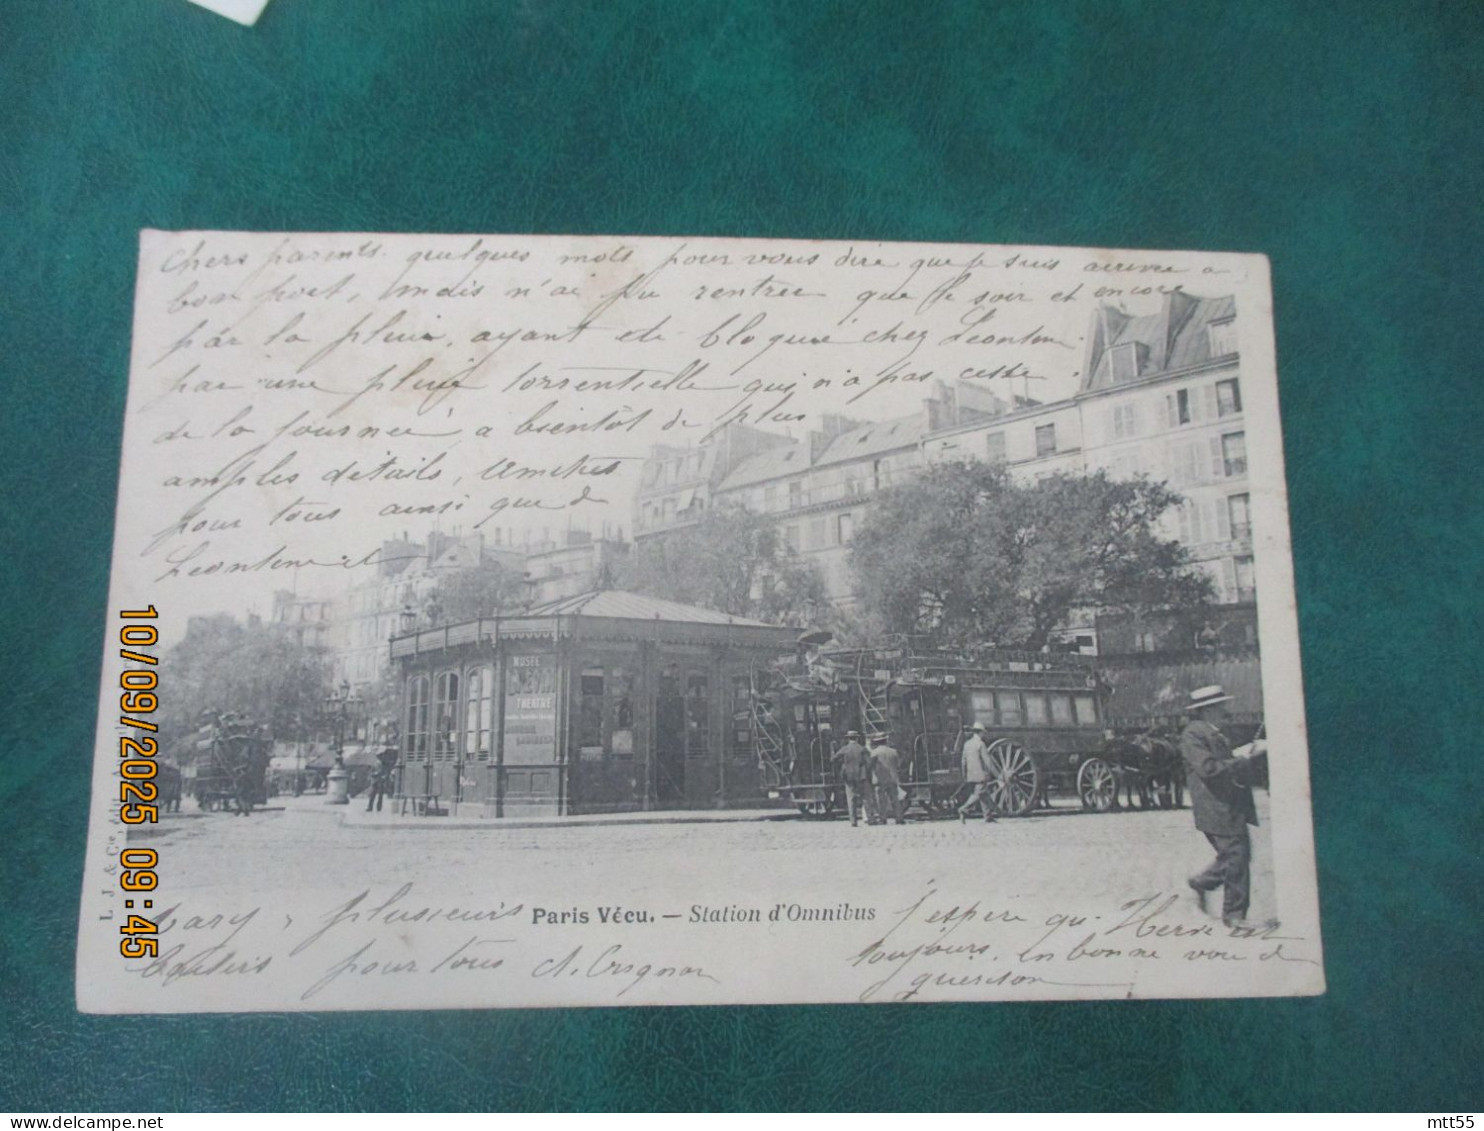 chers parents. quelques mots pour vous dire que je suis arrivée a
bon port, mais n'ai pu rentrée que le soir et encore
par la pluie, ayant été bloquée chez Leontine
par une pluie torrentielle qui n'a pas cessé
de la journée a bientôt de plus
amples détails, amitiés
pour tous ainsi que de
Leontine et
MUSÉE
THEATRE
L. J. & Cie
Paris Vécu. — Station d'Omnibus
plusieurs
baisers pour tous
J'espere qu. Herve est
toujours. en bonne voie de
guerison
10/09/2025 09:45
delcampe.net
mtt55